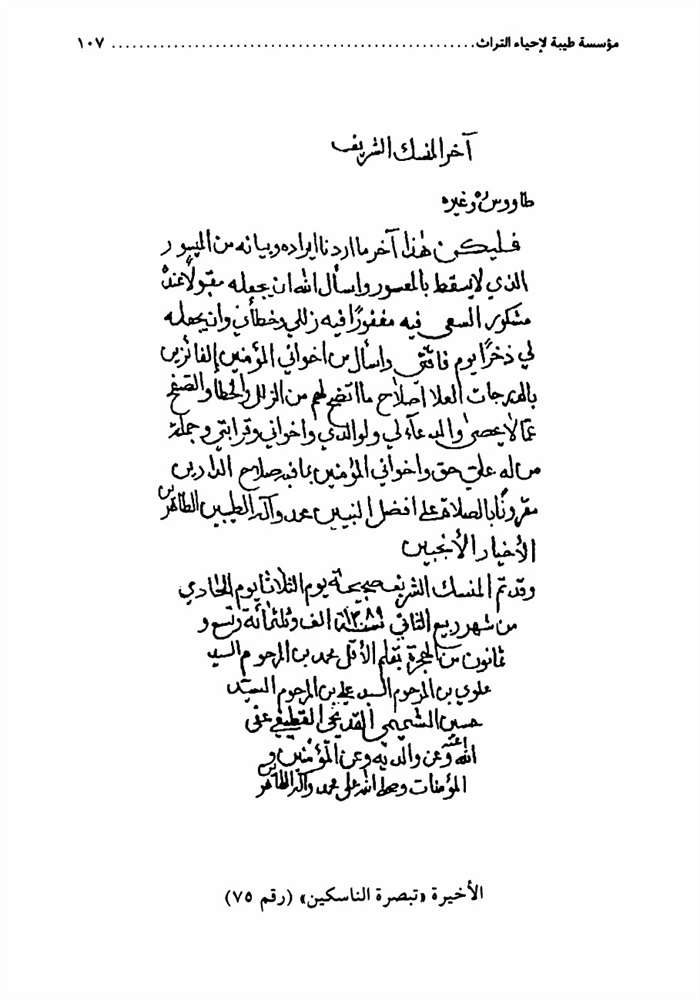 مؤسسة طيبة لإحياء التراث ........................................ ١٠٧
آخر المنسك الشريف
طاووس وغيره
فليكن هٰذا آخر ما اردنا ايراده وبيانه من الميسور
الذي لا يسقط بالمعسور واسأل الله ان يجعله مقبولًا عنده
مشكور السعي فيه مغفورًا فيه زللي وخطأي وان يجعله
لي ذخرًا يوم فاقتي واسأل من اخواني المؤمنين الفائزين
بالدرجات العلا اصلاح ما اتضح لهم من الزلل والخطأ والصفح
عمّا لا يحصى والدعآء لي ولوالدي واخواني وقرابتي وجملة
من له علي حق واخواني المؤمنين بما فيه صلاح الدارين
مقرونًا بالصلاة على افضل النبيين محمد وآله الطيبين الطاهرين
الأخيار الأنجبين
وقد تم المنسك الشريف صبيحة يوم الثلاثا يوم الحادي
من شهر ربيع الثاني سنة ١٣٨٩ الف وثلثمائة وتسع و
ثمانون من الهجرة بقلم الأقل محمد بن المرحوم السيد
علوي بن المرحوم السيد علي بن المرحوم السيّد
حسين الشميمي القديحي القطيفي عفى
الله عنه وعن والديه وعن المؤمنين و
المؤمنات وصلى الله على محمد وآله الطاهرين
الأخيرة «تبصرة الناسكين» (رقم ٧٥)